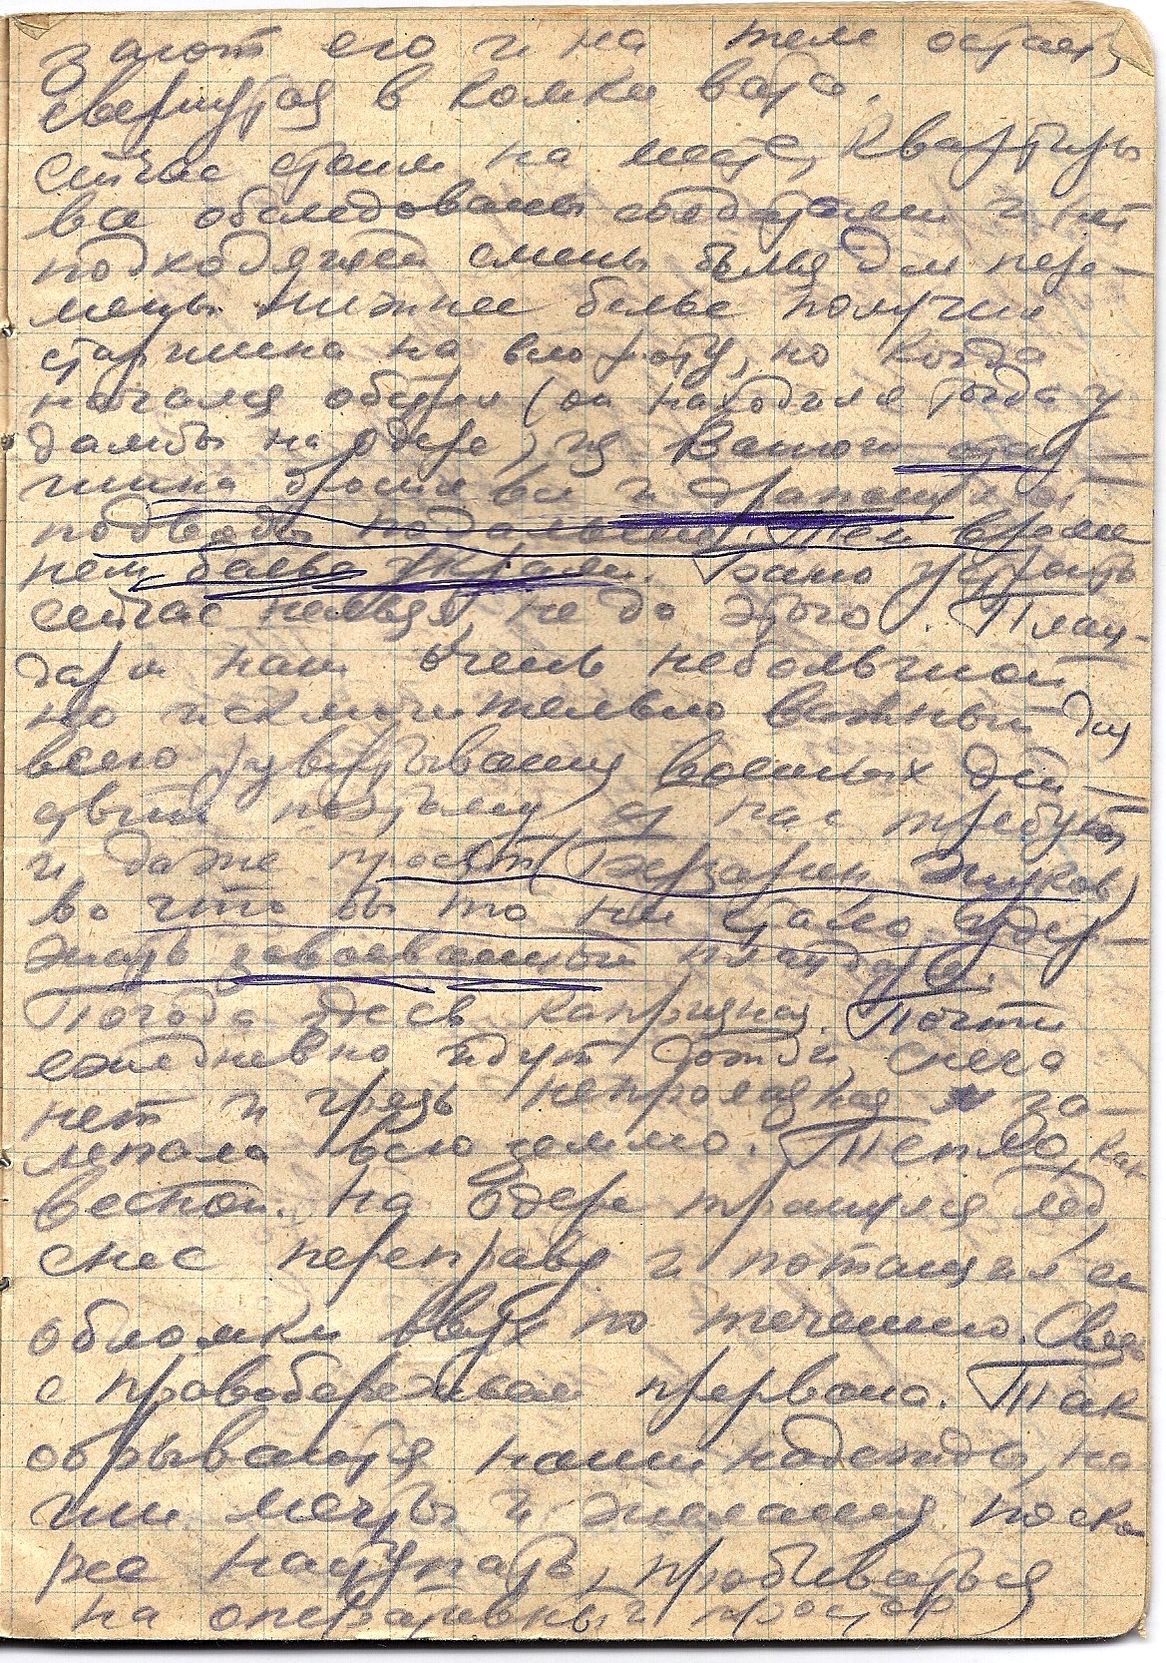 зают его и на теле остает
свернутая в комки вата.
Сейчас стоим на месте, квартиры
все обследованы солдатами и нет
подходящей смены белья для пере-
мены. Нижнее белье получил
старшина на всю роту, но когда
начался обстрел (он находился тогда у
дамбы на Одере), из Вашой стар-
шина бросил все и драпанул от
подводы подальше. Тем време
нем белье украли. Баню устроить
сейчас нельзя, не до этого. Плац-
дарм наш очень небольшой
но исключительно важный для
всего развертывания военных дей-
ствий поэтому от нас требуют
и даже просят (Берзарин, Жуков)
во что бы то ни стало удер-
жать завоеванный плацдарм.
Погода здесь капризная. Почти
ежедневно идут дожди, снега
нет и грязь непролазная за-
лепала всю землю. Тепло, как
весной. На Одере тронулся лед,
снес переправу и потащил ее
обломки вверх по течению. Связь
с правобережьем прервана. Так
обрываются наши надежды, на
ши мечты и желания поско
рее наступать, пробиваться
на оперативный простор